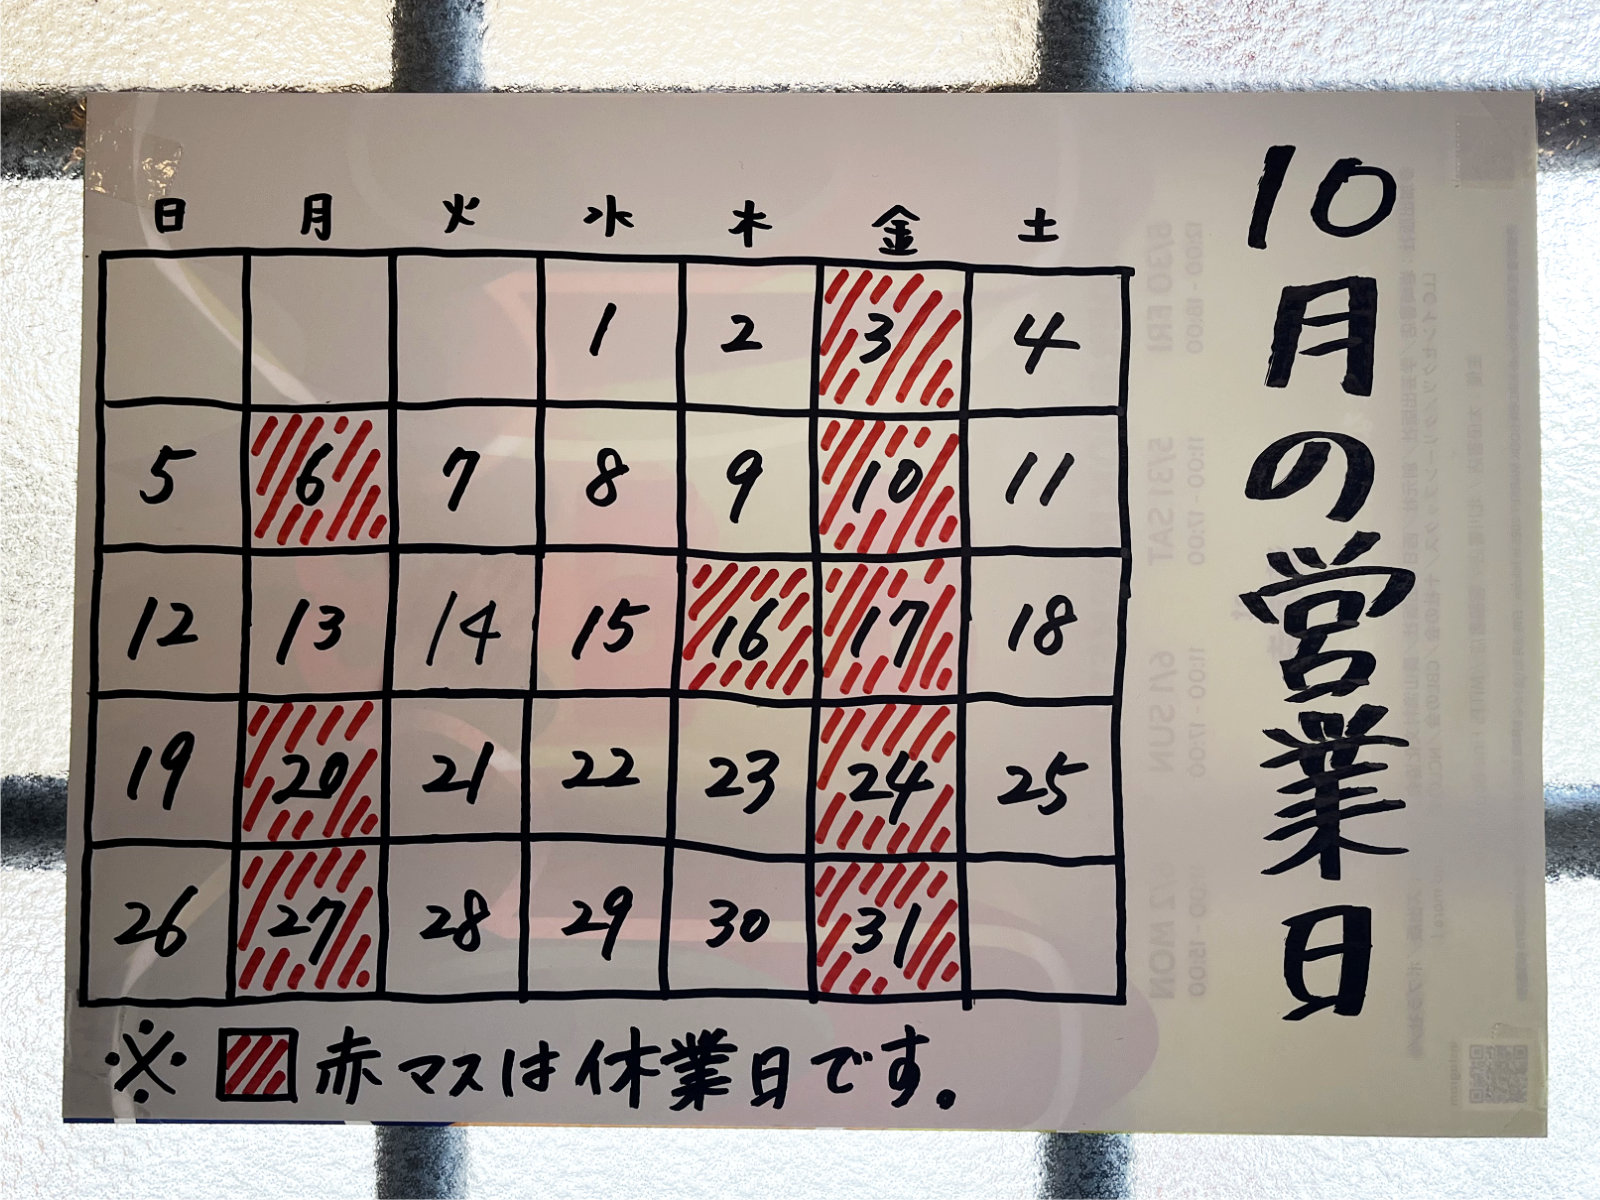 10月の営業日
日 月 火 水 木 金 土
1 2 3 4
5 6 7 8 9 10 11
12 13 14 15 16 17 18
19 20 21 22 23 24 25
26 27 28 29 30 31
※ 赤マスは休業日です。